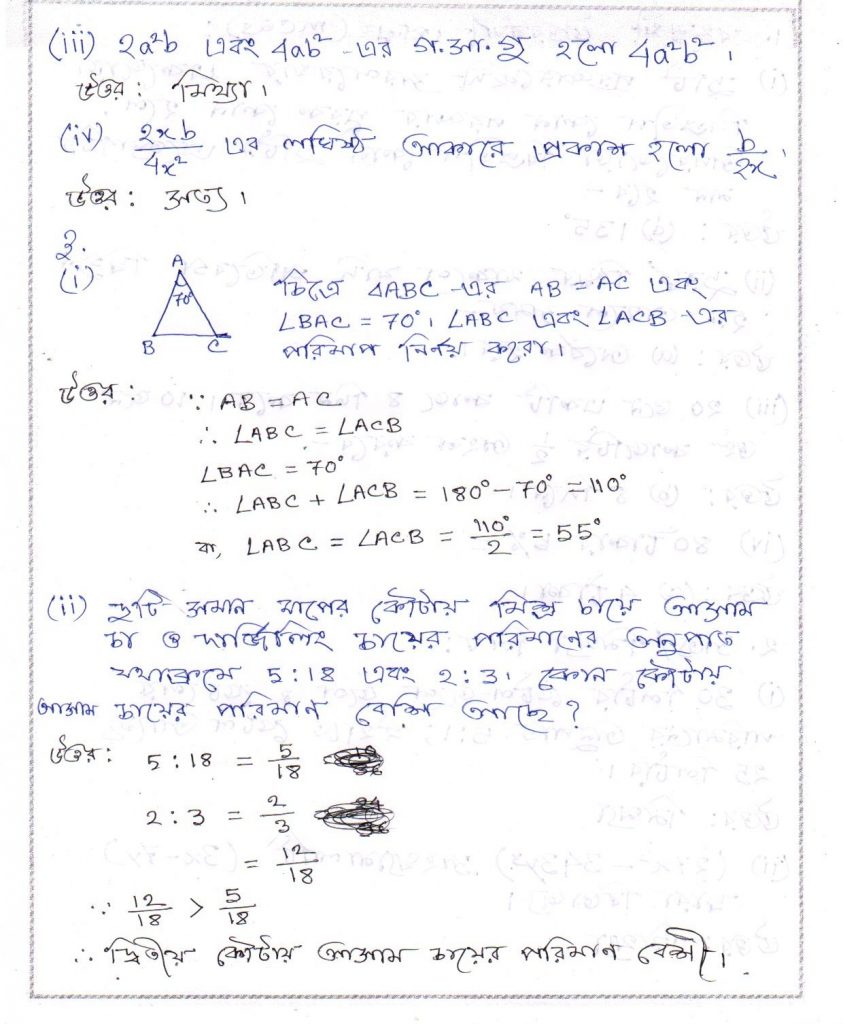 (iii) 2a²b এবং 4ab² -এর গ.সা.গু হলো 4a²b² ।
উত্তর : মিথ্যা ।
(iv) 2xb/4x² এর লঘিষ্ঠ আকারে প্রকাশ হলো b/2x ।
উত্তর : সত্য ।
3.
(i) A 70° B C চিত্রে ΔABC -এর AB = AC এবং
∠BAC = 70° । ∠ABC এবং ∠ACB -এর
পরিমাপ নির্ণয় করো ।
উত্তর : ∵ AB = AC
∴ ∠ABC = ∠ACB
∠BAC = 70°
∴ ∠ABC + ∠ACB = 180° - 70° = 110°
বা, ∠ABC = ∠ACB = 110°/2 = 55°
(ii) দুটি সমান মাপের কৌটায় মিশ্র চায়ে আসাম
চা ও দার্জিলিং চায়ের পরিমানের অনুপাত
যথাক্রমে 5 : 18 এবং 2 : 3 । কোন কৌটায়
আসাম চায়ের পরিমান বেশি আছে ?
উত্তর : 5 : 18 = 5/18
2 : 3 = 2/3
= 12/18
∵ 12/18 > 5/18
∴ দ্বিতীয় কৌটায় আসাম চায়ের পরিমান বেশী ।